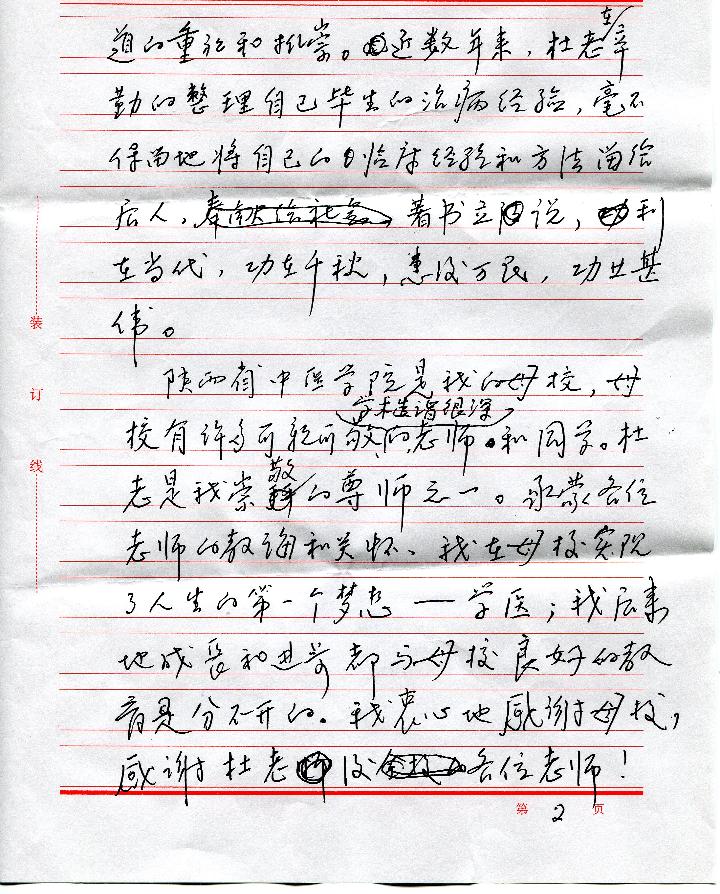 道的重视和推崇。近数年来，杜老在辛
勤的整理自己毕生的治病经验，毫不
保留地将自己的临床经验和方法留给
后人，著书立说，利
在当代，功在千秋，惠及万民，功业甚
伟。
陕西省中医学院是我的母校，母
学术造诣很深
校有许多可亲可敬的老师和同学。杜
老是我崇敬的尊师之一。承蒙各位
老师的教诲和关怀、我在母校实现
了人生的第一个梦想——学医；我后来
地成长和进步都与母校良好的教
育是分不开的。我衷心地感谢母校，
感谢杜老及各位老师！
装
订
线
第 2 页